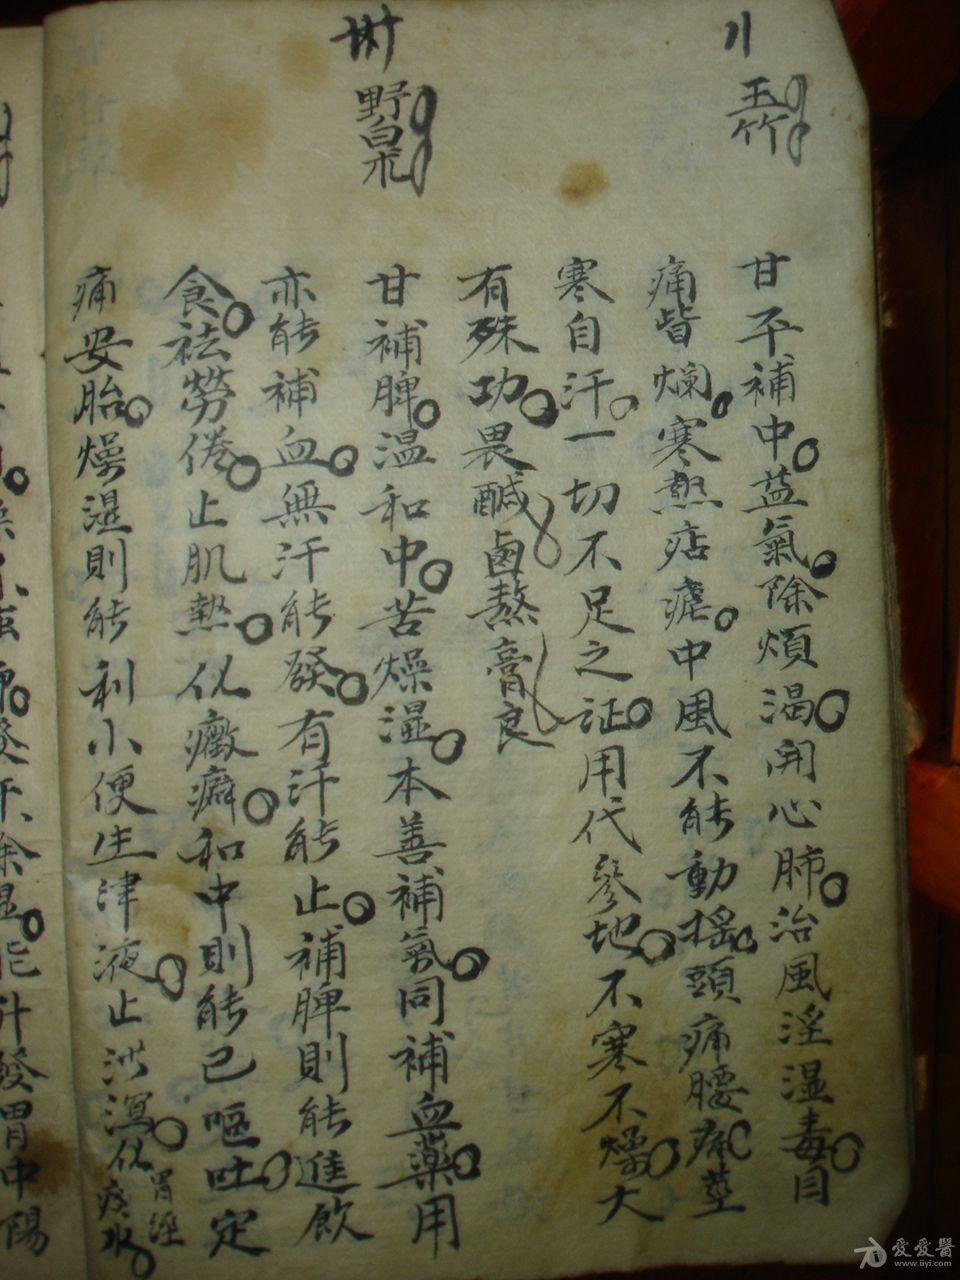 玉竹
甘平補中益氣除煩渴開心肺治風淫湿毒目
痛眥爛寒熱痁瘧中風不能動搖頭痛腰疼莖
寒自汗一切不足之証用代參地不寒不燥大
有殊功畏鹹鹵熬膏良
野白朮
甘補脾温和中苦燥湿本善補氣同補血藥用
亦能補血無汗能發有汗能止補脾則能進飲
食祛勞倦止肌熱化癥癖和中則能已嘔吐定
痛安胎燥湿則能利小便生津液止洪瀉化胃經
痰水
愛愛醫
www.iiyi.com